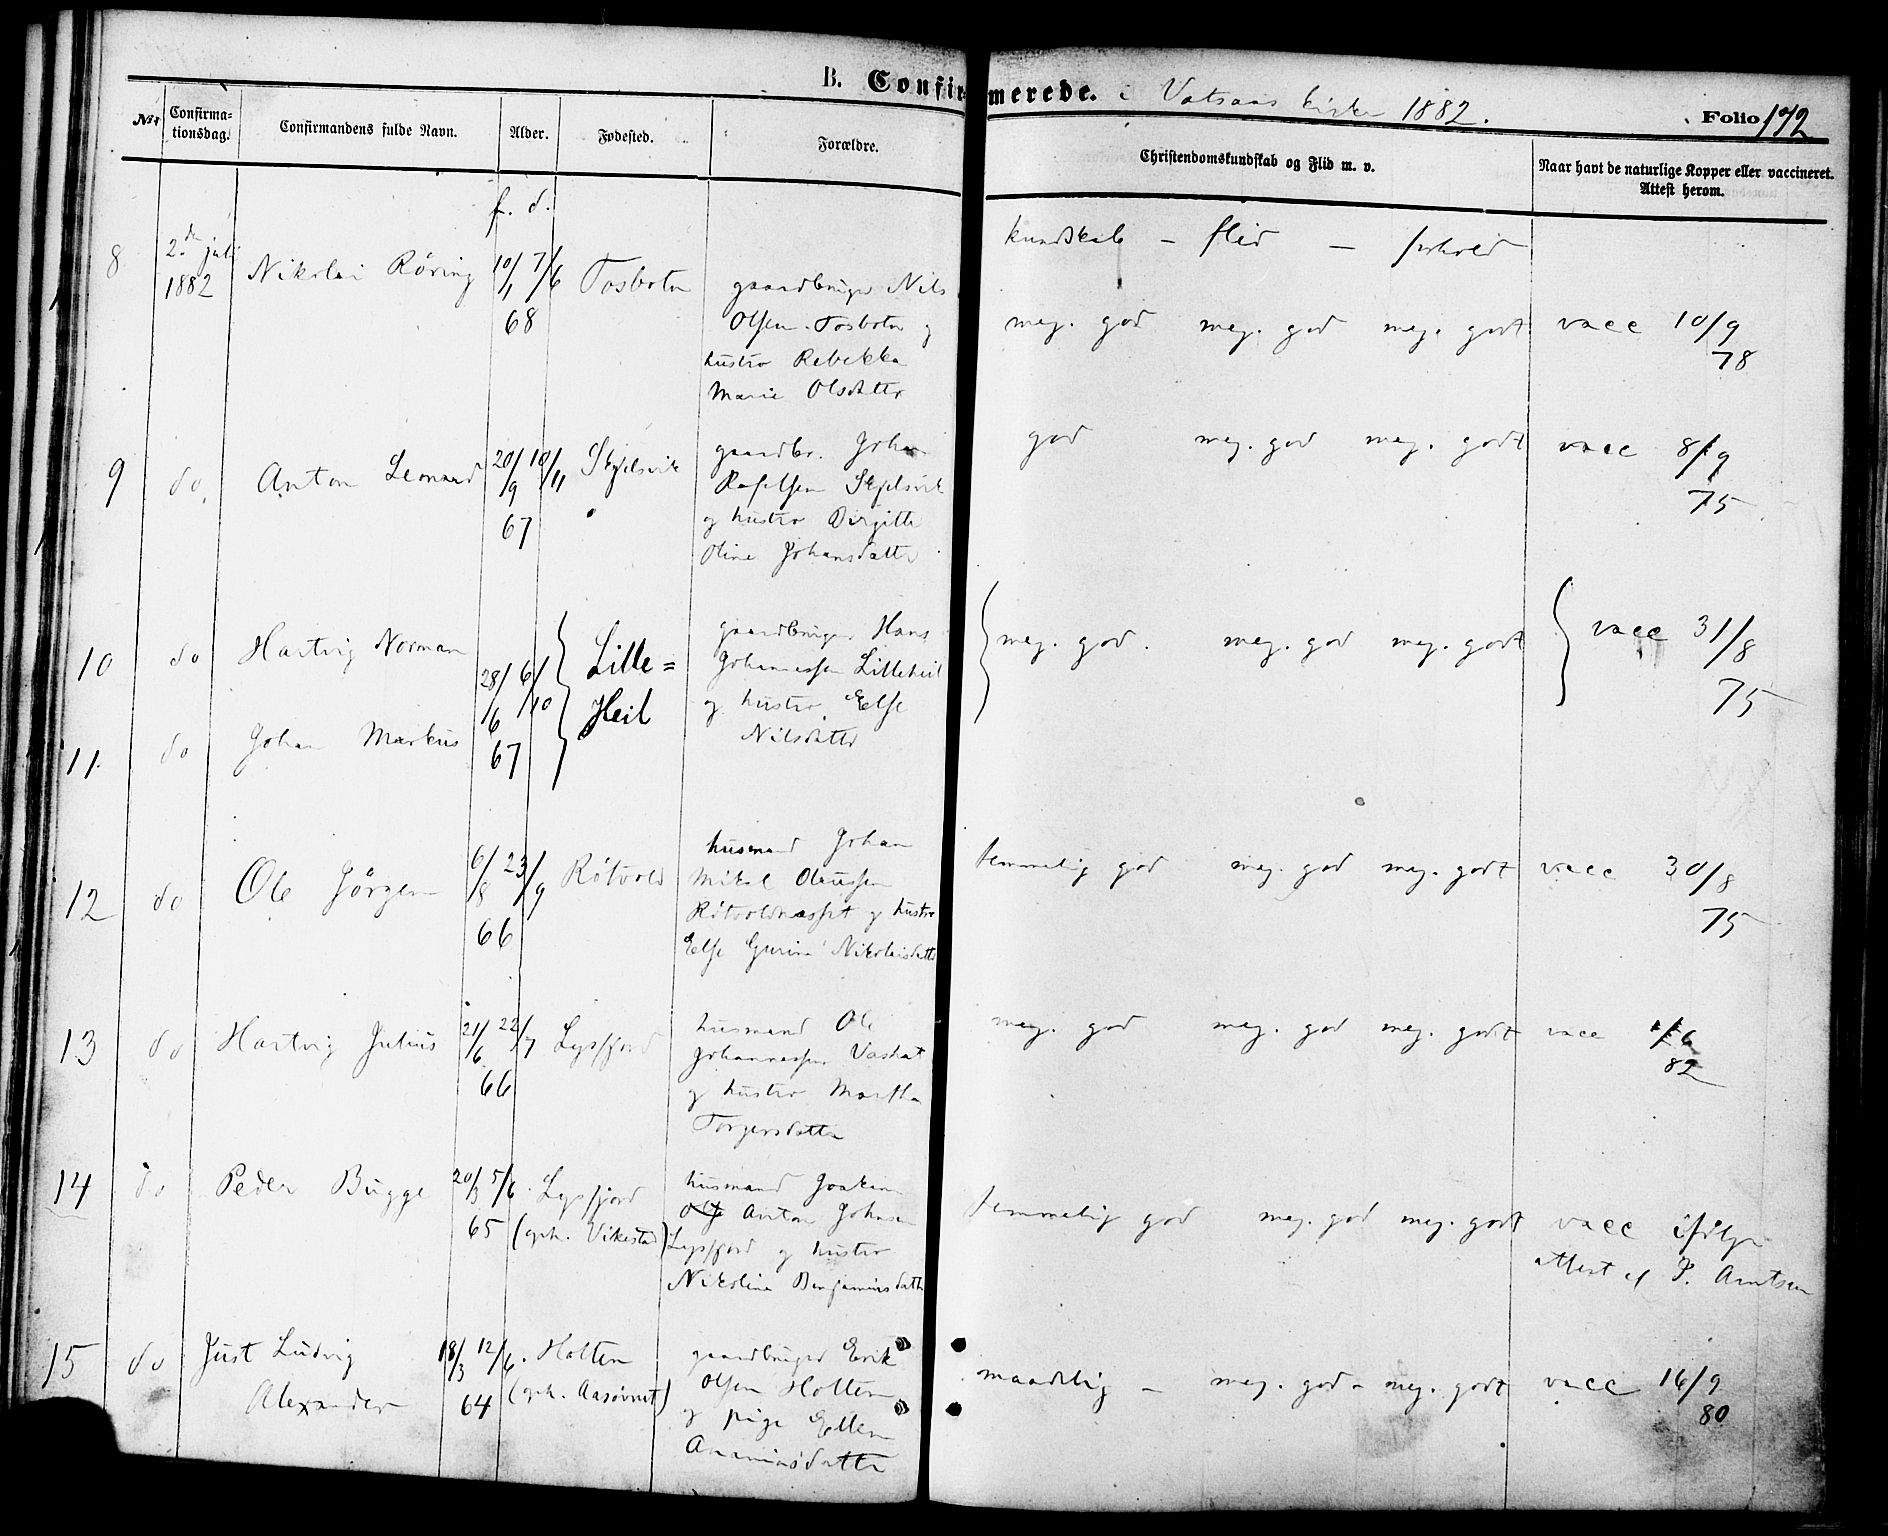 B. Confirmerede. i Vatsaas kirke 1882.
Folio 172
No.
Confirma-
tionsdag.
Confirmandens fulde Navn.
Alder.
Fødested.
Forældre.
Christendomskundskab og Flid m. v.
Naar havt de naturlige Kopper eller vaccineret.
Attest herom.
f. d.
kundskab – flid – forhold
8 2den juli 1882 Nikolai Röring 10/1 7/6 68 Tosbotn
gaardbruger Nils
Olsen Tosbotn og
hustro Rebekka
Marie Olsdatter
meg. god meg. god meg. godt vacc 10/9 78
9 do Anton Leonard 20/9 10/11 67
gaardbr. Johan
og hustro Birgitte
Oline Johansdatter
god meg. god meg. godt vacc 8/9 75
10 do Hartvig Norman
11. do Johan Markus
28/6 6/10 67
Lille=
Heil
gaardbruger Hans
Johannessen Lilleheil
og hustro Else
Nilsdatter
meg. god. meg. god meg. godt vacc 31/8 75
12 do Ole Jörgen 6/8 23/9 66 Rötvold
husmand Johan
Mikal Olaussen
Rötvoldnesset og hustro
Else Gurina Nikolaisdatter
temmelig god meg. god meg. godt vacc 30/8 75
13 do Hartvig Julius 21/6 22/7 66 Lysfjord
husmand Ole
Johannessen
og hustro Martha
Torgersdatter
meg. god meg. god meg. godt vacc 1/6 82
14 do Peder Bugge 20/3 5/6 65 Lysfjord
(oph. Vikestad)
husmand Joakim
Anton Johnsen
Lysfjord og hustro
Nikolina Benjaminsdatter
temmelig god meg. god meg. godt vacc ifölge
attest af P. Arntsen
15 do Just Ludvig
Alexander
18/3 12/6 64
Holten
(oph. Aasövnet)
gaardbruger Erik
Olsen Holten
og pige Ellen
Ananiasdatter
maadelig – meg. god – meg. godt vacc 16/9 80